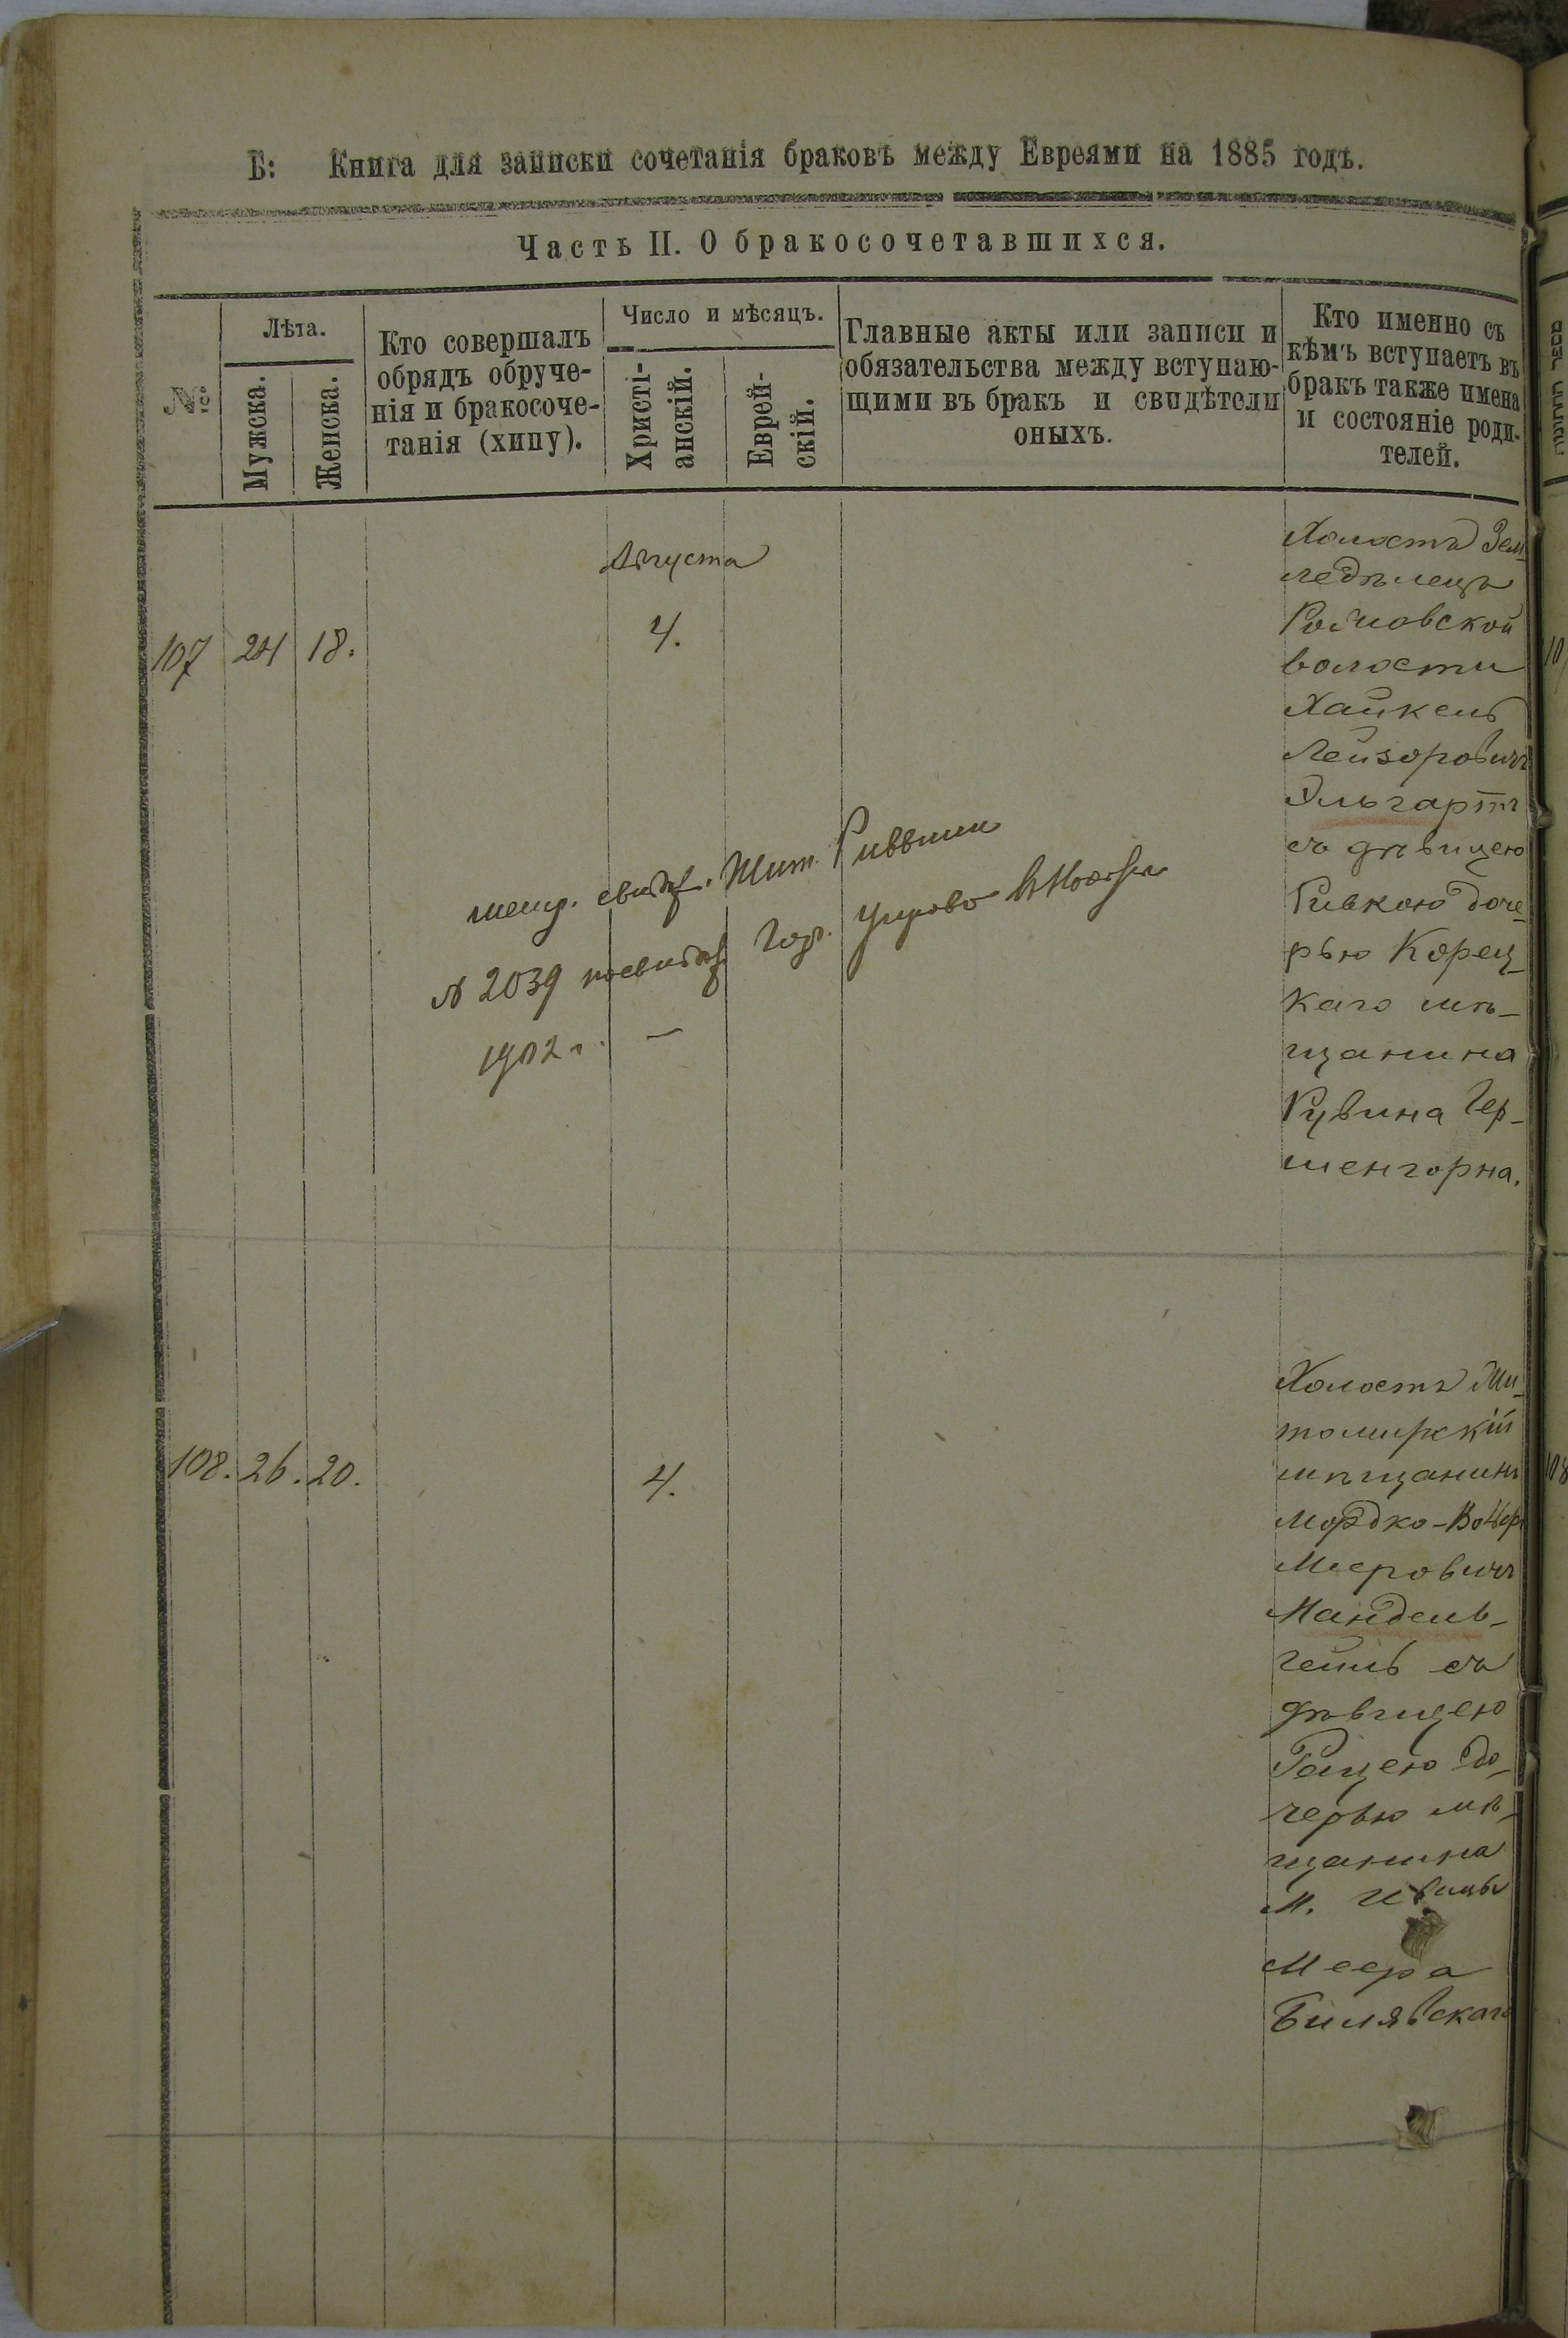 Б: Книга для записки сочетанія браковъ между Евреями на 1885 годъ.
Часть II. О бракосочетавшихся.
№
Лѣта.
Мужска.
Женска.
Кто совершалъ
обрядъ обруче-
нія и бракосоче-
танія (хипу).
Число и мѣсяцъ.
Христі-
анскій.
Еврей-
скій.
Главные акты или записи и
обязательства между вступаю-
щими въ бракъ и свидѣтели
оныхъ.
Кто именно съ
кѣмъ вступаетъ въ
бракъ также имена
и состояніе роди-
телей.
Августа
107 24 18. 4.
Холостъ Зем-
ледѣлецъ
волости
Хайкель
Лейзоровичъ
Эльгартъ
съ дѣвицею
Ривкою доче-
рью Корец-
каго мѣ-
щанина
Рувина Гер-
шенгорна.
метр. свид. Жит.
№ 2039
1902 г. —
108. 26. 20. 4.
Холостъ Жи-
томирскій
мѣщанинъ
Мордко-Вольф
Меровичъ
Мандель-
гейль съ
дѣвицею
до-
черью мѣ-
щанина
М.
Меера
Билявскаго